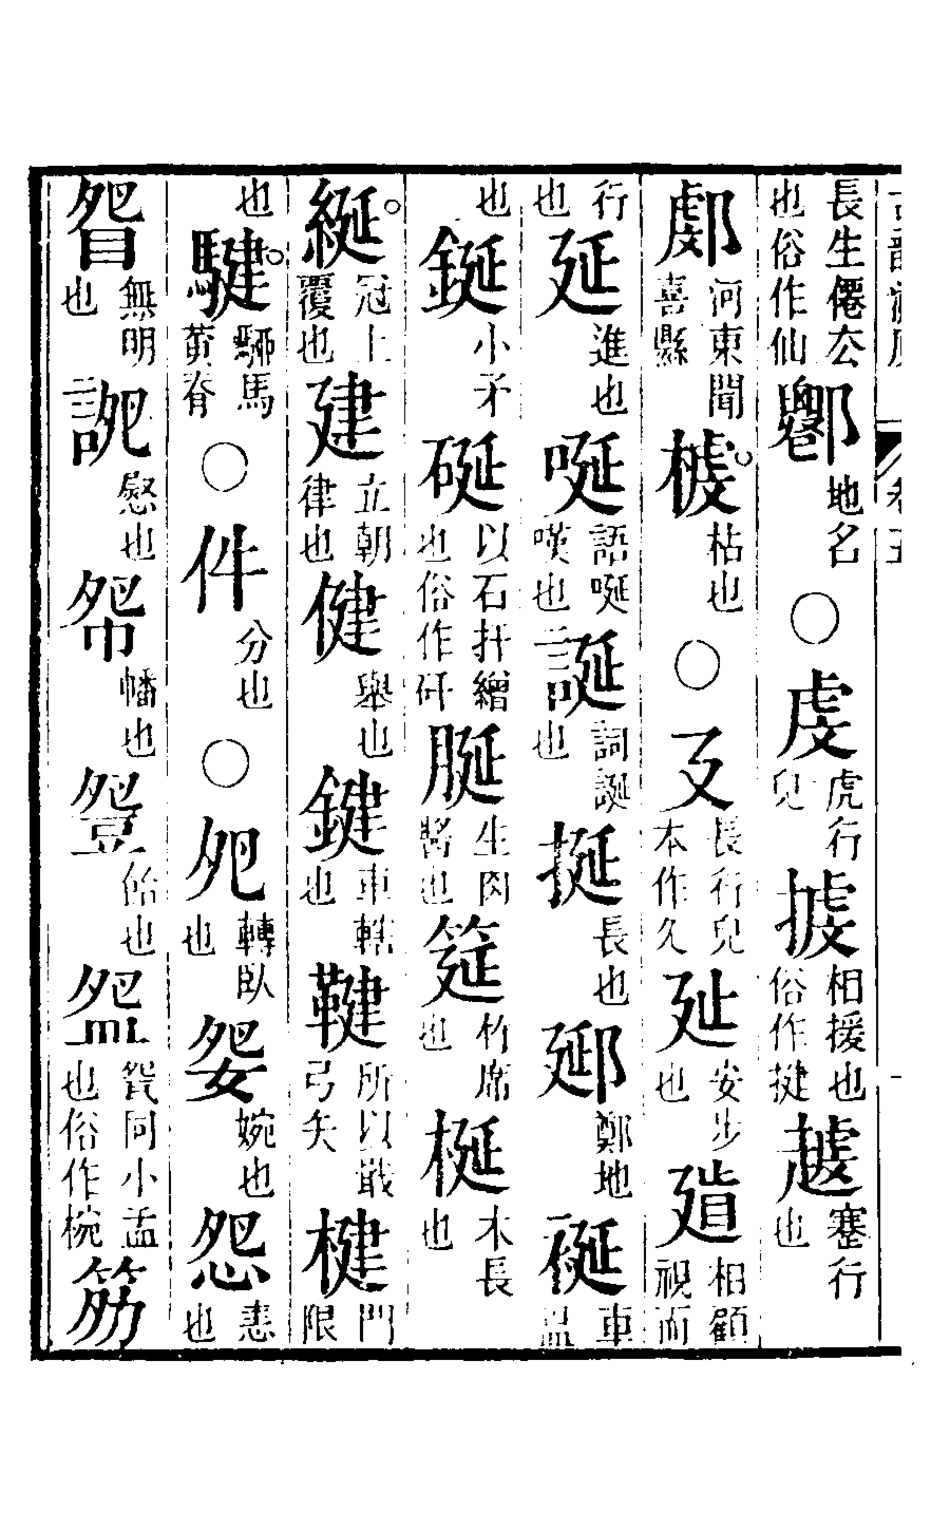 長生僊去也俗作仙 鄭地名 〇 虔虎行皃 揵相援也俗作揵 䖍蹇行也
鄠河東聞喜縣 榩枯也 〇 廴長行皃本作久 延安步也 㢟相顧視而
行也 延進也 唌語唌嘆也 誕詞誕也 挻長也 郔鄭地 䘰車温
也 鋋小矛 硟以石扞繒也俗作矸 脠生肉醬也 筵竹席也 梴木長也
綖冠上覆也 建立朝律也 健舉也 鍵車轄也 鞬所以戢弓矢 楗門限
也 騝騮馬黄脊 〇 件分也 〇 夗轉臥也 妴婉也 怨恚也
眢無明也 𧧼慰也 帑幡也 䇉飴也 盌㼝同小盂也俗作椀 笏